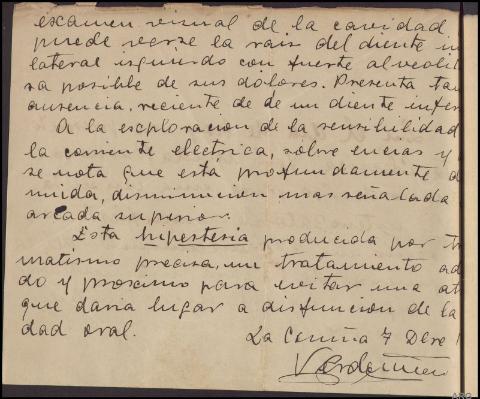 examen visual de la cavidad
puede verse la raiz del diente in
lateral izquierdo con fuerte alveoli
sa posible de sus dolores. Presenta tam
ausencia, reciente de de un diente infer
A la exploración de la sensibilidad
la corriente electrica, sobre encias y
se nota que está profundamente d
nuida, disminucion mas señalada
arcada superior.
Esta hipestesia producida por tr
matismo precisa, un tratamiento ad
do y proximo para evitar una at
que daria lugar a disfuncion de la
dad oral.
La Coruña 7 Dcre